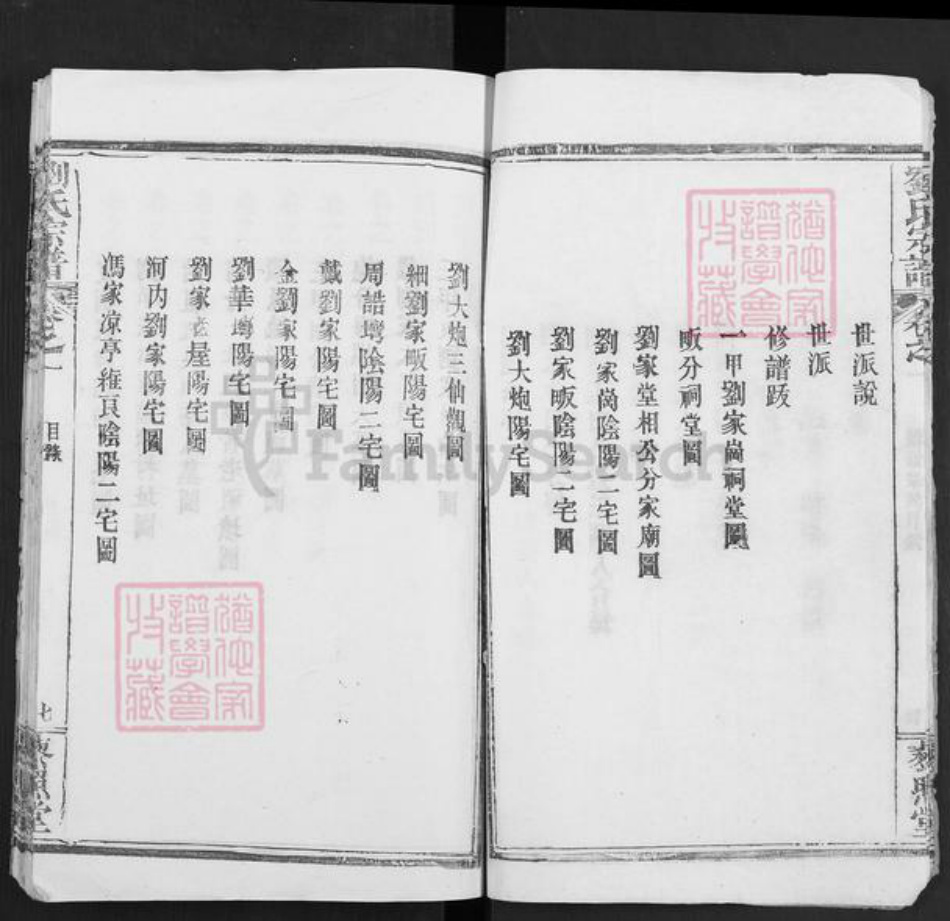 劉氏宗譜
卷之一
藜照堂
世派說
世派
修譜跋
一甲劉家崗祠堂圖
畈分祠堂圖
劉家堂相公分家廟圖
劉家崗陰陽二宅圖
劉家畈陰陽二宅圖
劉大炮陽宅圖
劉大炮三仙觀圖
細劉家畈陽宅圖
周誥塆陰陽二宅圖
戴劉家陽宅圖
金劉家陽宅圖
劉華塆陽宅圖
劉家老屋陽宅圖
河內劉家陽宅圖
馮家凉亭維頁陰陽二宅圖
劉氏宗譜
卷之一
目錄
七
藜照堂
譜學會
藏
譜學會
藏
FamilySearch